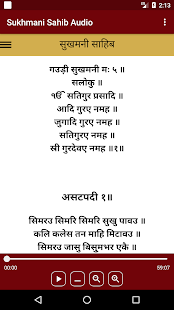 2:13
Sukhmani Sahib Audio
सुखमनी साहिब
गउड़ी सुखमनी मः ५ ॥
सलोकु ॥
ੴ सतिगुर प्रसादि ॥
आदि गुरए नमह ॥
जुगादि गुरए नमह ॥
सतिगुरए नमह ॥
स्री गुरदेवए नमह ॥१॥
असटपदी १॥
सिमरउ सिमरि सिमरि सुखु पावउ ॥
कलि कलेस तन माहि मिटावउ ॥
सिमरउ जासु बिसुमभर एकै ॥
00:00
59:07